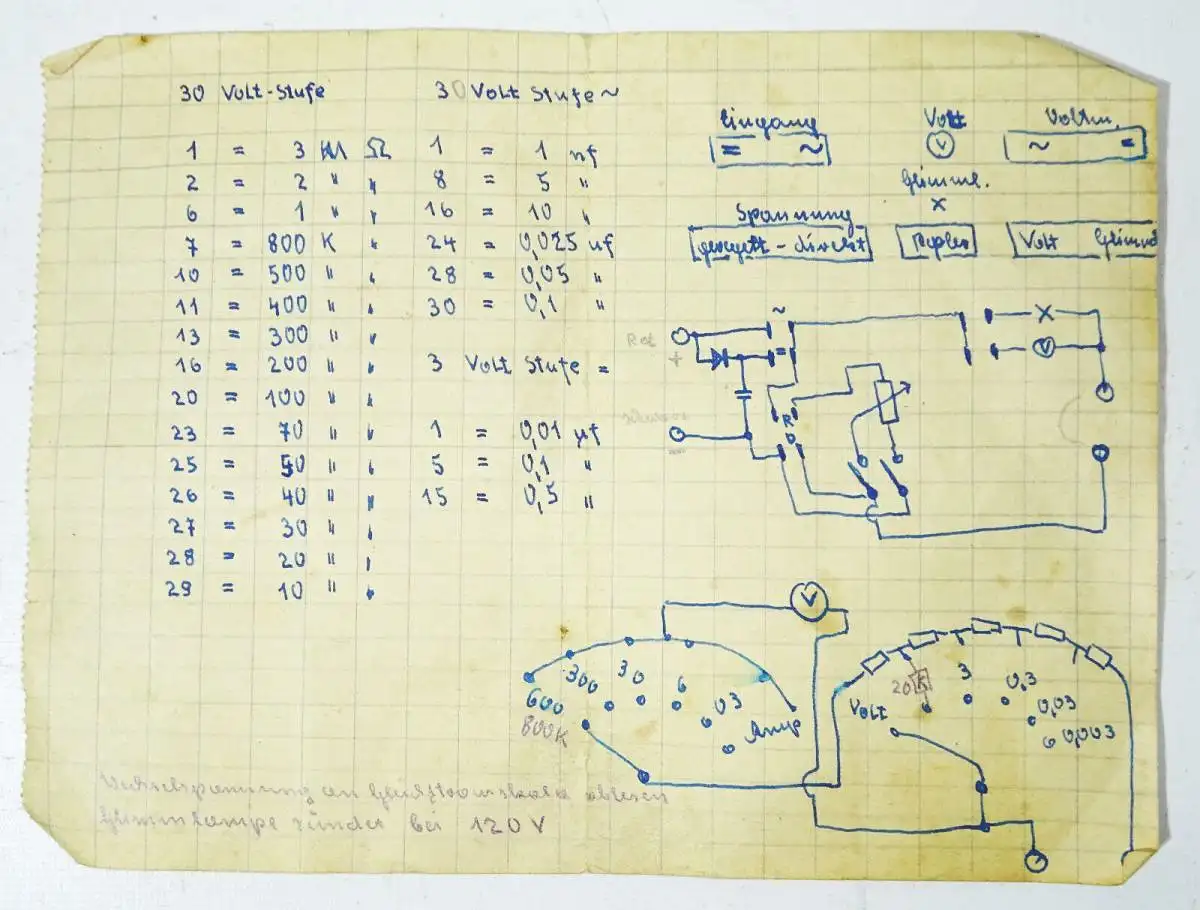 30 Volt-Stufe
1 = 3 M Ω
2 = 2 " "
6 = 1 " "
7 = 800 K "
10 = 500 " "
11 = 400 " "
13 = 300 " "
16 = 200 " "
20 = 100 " "
23 = 70 " "
25 = 50 " "
26 = 40 " "
27 = 30 " "
28 = 20 " "
29 = 10 " "
30 Volt Stufe ~
1 = 1 nf
8 = 5 "
16 = 10 "
24 = 0,025 uf
28 = 0,05 "
30 = 0,1 "
3 Volt Stufe =
1 = 0,01 µf
5 = 0,1 "
15 = 0,5 "
Eingang
= ~
Volt
V
Glimml.
x
Voltm.
~ =
Spannung
geregelt - direkt
Volt Glimml
Rot
+
~
=
R
V
-
V
600
300
30
6
03
Amp
800K
Volt
20K
3
0,3
0,03
0,003
Wechselspannung an Gleichstromskala ablesen
Glimmlampe zündet bei 120 V